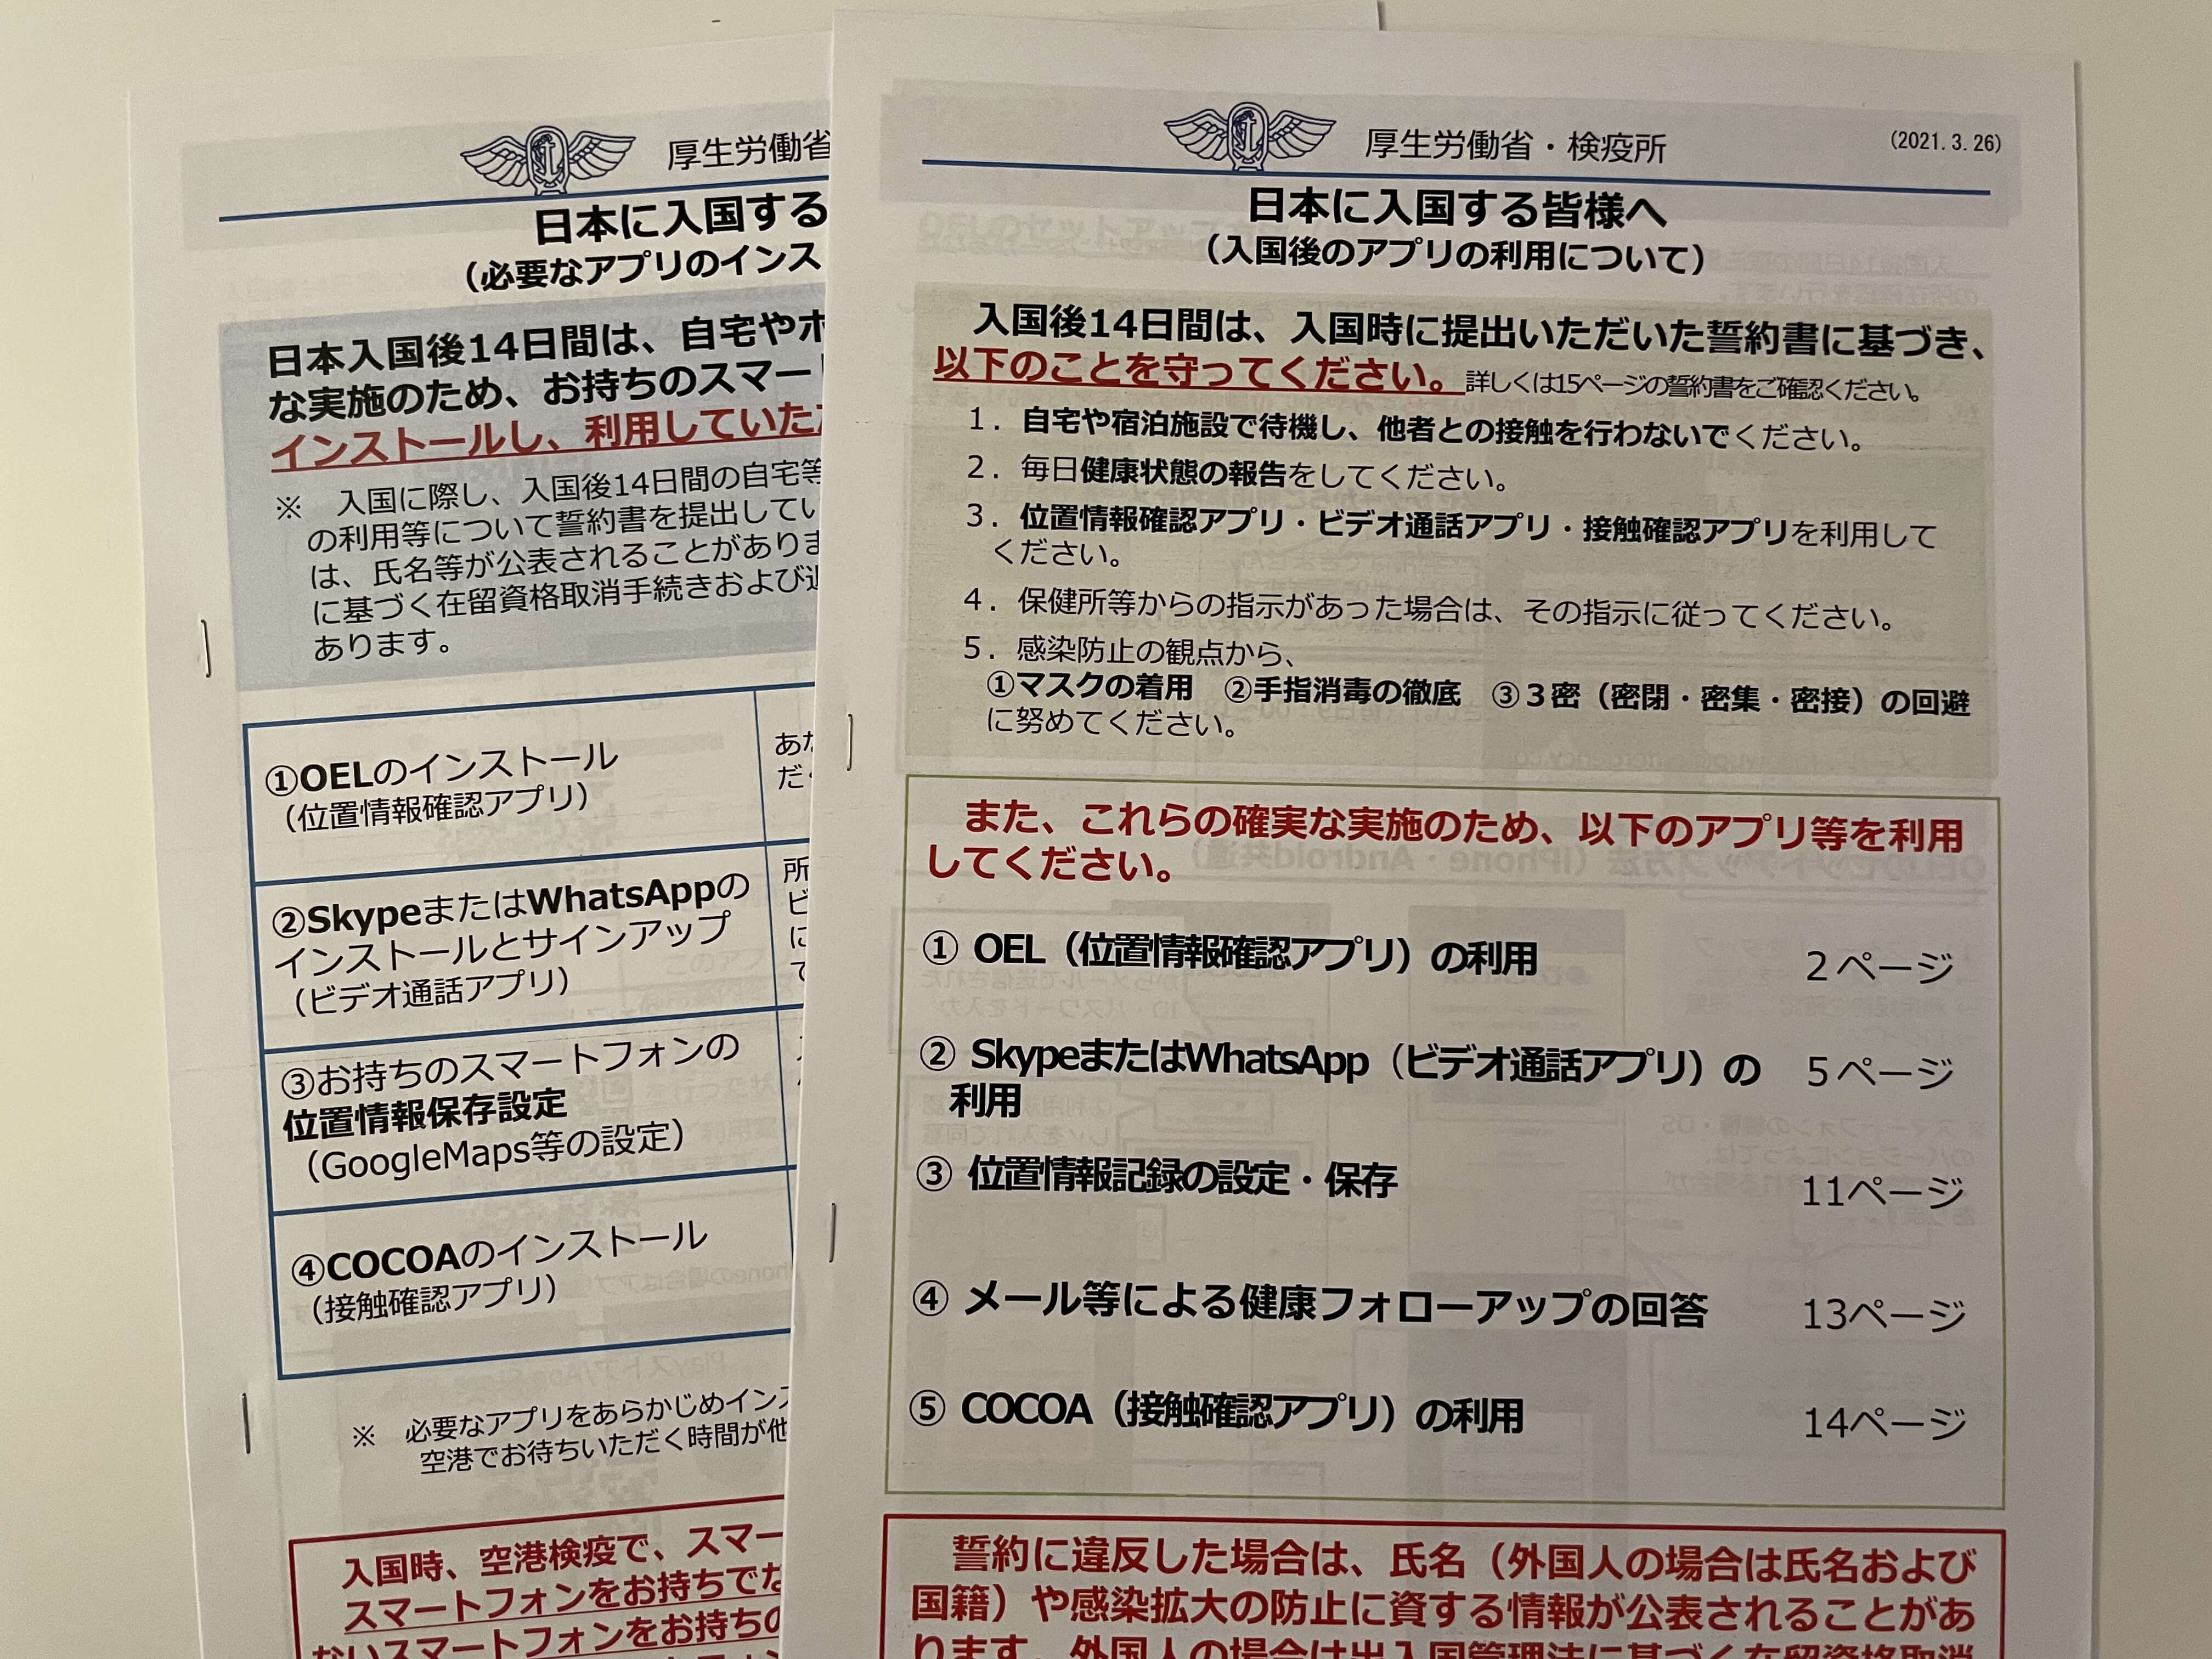 厚生労働省
日本に入国する
（必要なアプリのインス
日本入国後14日間は、自宅やホ
な実施のため、お持ちのスマー
インストールし、利用していた
※　入国に際し、入国後14日間の自宅等
の利用等について誓約書を提出してい
は、氏名等が公表されることがありま
に基づく在留資格取消手続きおよび退
あります。
①OELのインストール
（位置情報確認アプリ）
あな
だ
②SkypeまたはWhatsAppの
インストールとサインアップ
（ビデオ通話アプリ）
所
ビ
に
て
③お持ちのスマートフォンの
位置情報保存設定
（GoogleMaps等の設定）
④COCOAのインストール
（接触確認アプリ）
※　必要なアプリをあらかじめインス
空港でお待ちいただく時間が他
入国時、空港検疫で、スマー
スマートフォンをお持ちでな
ないスマートフォンをお持ちの
厚生労働省・検疫所
(2021.3.26)
日本に入国する皆様へ
（入国後のアプリの利用について）
入国後14日間は、入国時に提出いただいた誓約書に基づき、
以下のことを守ってください。詳しくは15ページの誓約書をご確認ください。
1．自宅や宿泊施設で待機し、他者との接触を行わないでください。
2．毎日健康状態の報告をしてください。
3．位置情報確認アプリ・ビデオ通話アプリ・接触確認アプリを利用して
ください。
4．保健所等からの指示があった場合は、その指示に従ってください。
5．感染防止の観点から、
①マスクの着用　②手指消毒の徹底　③３密（密閉・密集・密接）の回避
に努めてください。
また、これらの確実な実施のため、以下のアプリ等を利用
してください。
① OEL（位置情報確認アプリ）の利用　2ページ
② SkypeまたはWhatsApp（ビデオ通話アプリ）の　5ページ
利用
③ 位置情報記録の設定・保存　11ページ
④ メール等による健康フォローアップの回答　13ページ
⑤ COCOA（接触確認アプリ）の利用　14ページ
誓約に違反した場合は、氏名（外国人の場合は氏名および
国籍）や感染拡大の防止に資する情報が公表されることがあ
ります。外国人の場合は出入国管理法に基づく在留資格取消